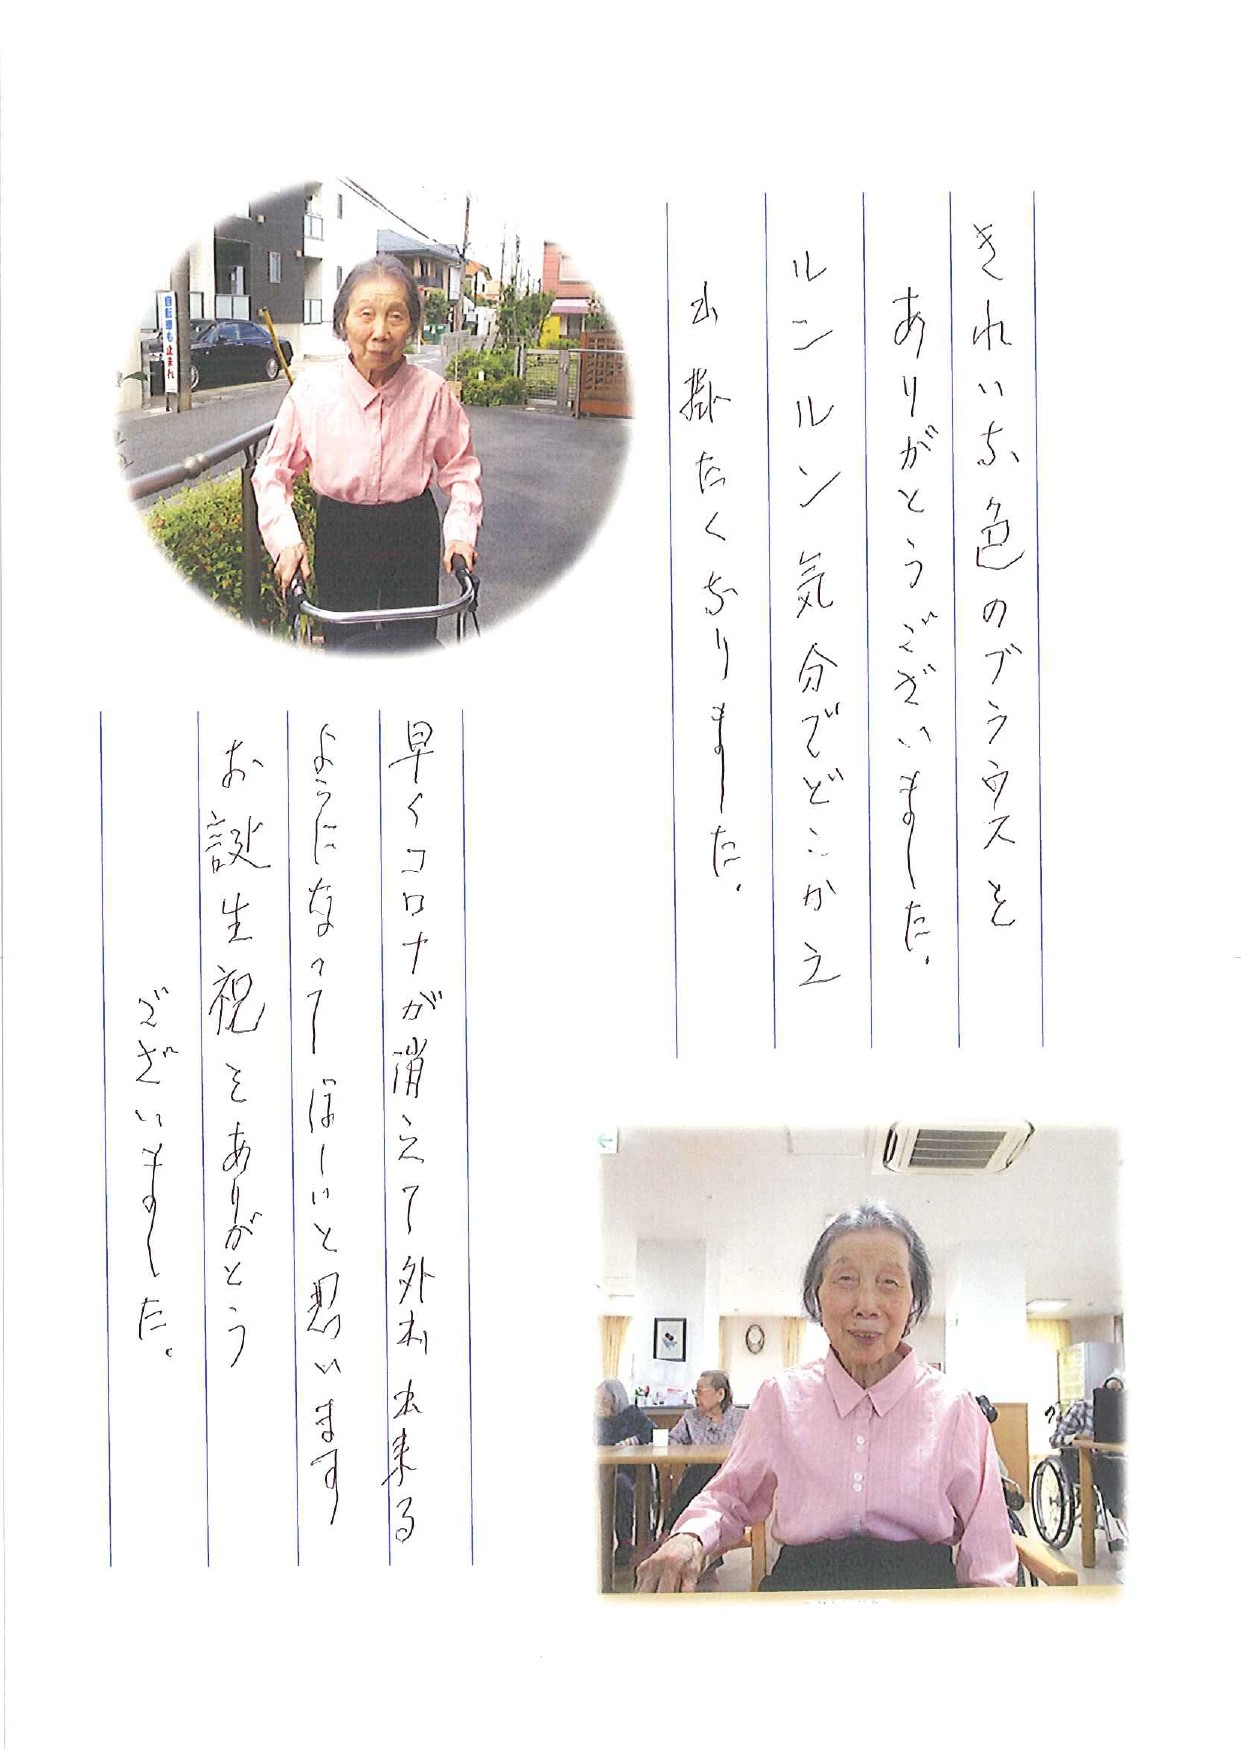 きれいな色のブラウスを
ありがとうございました。
ルンルン気分でどこかえ
出掛たくなりました。
早くコロナが消えて外出出来る
ようになってほしいと思います
お誕生祝をありがとう
ございました。
自転車も止まれ